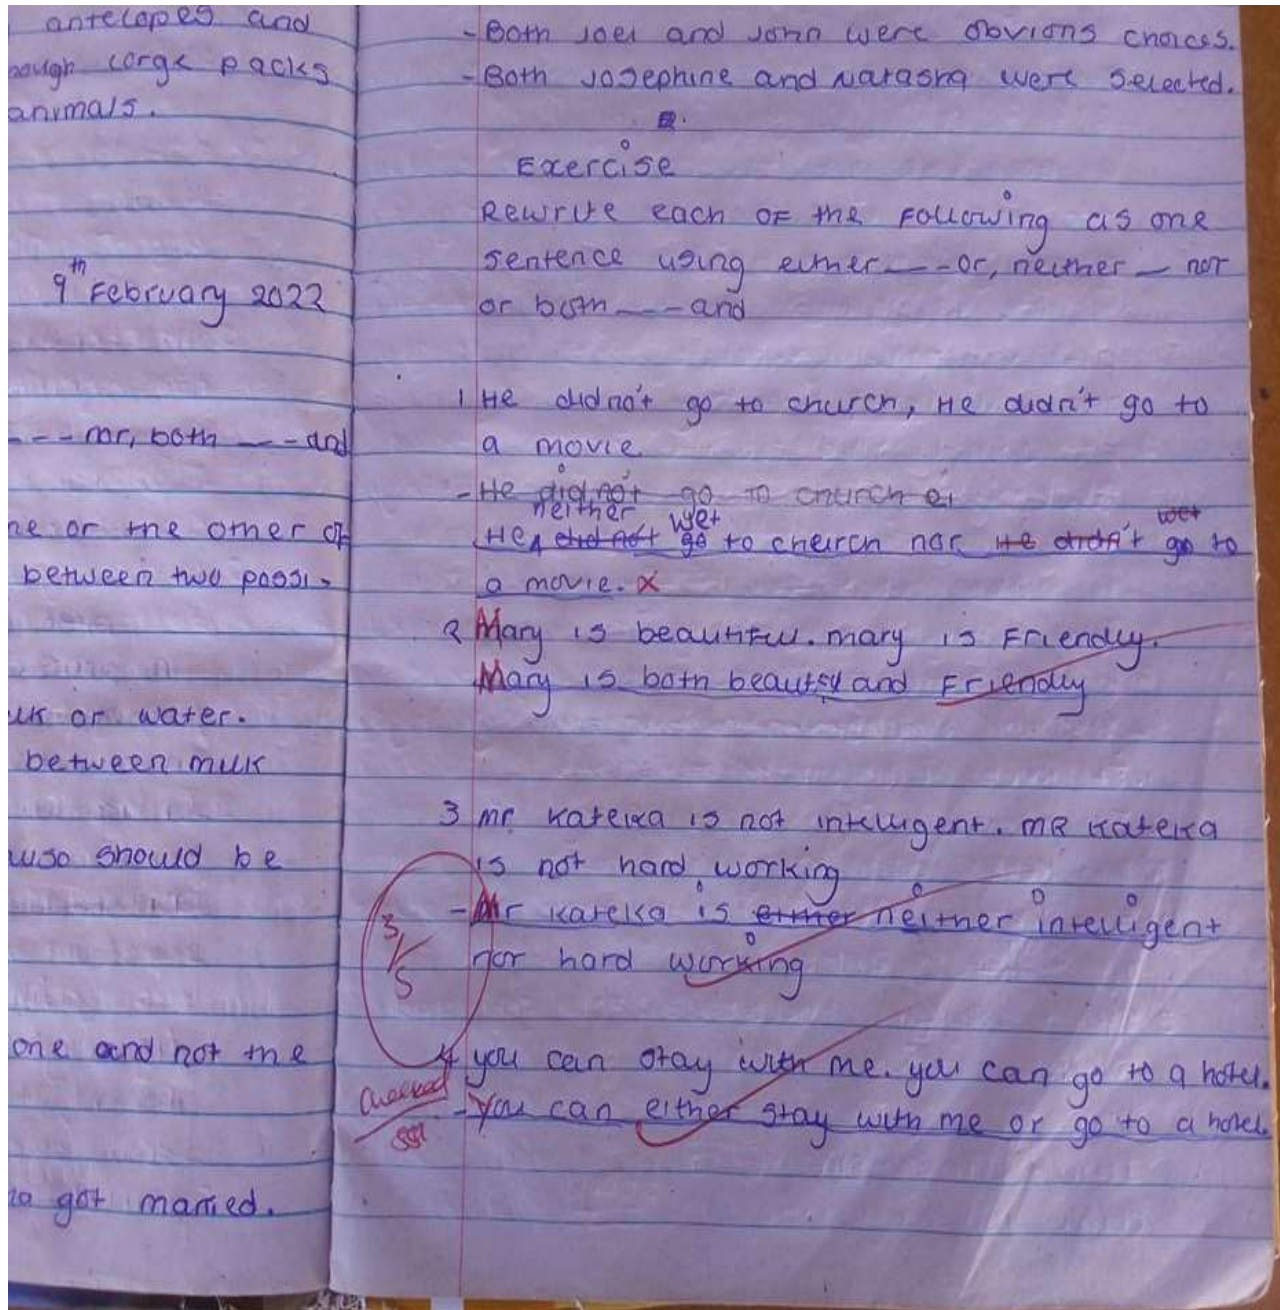 antelopes and
ough large packs
animals.
9th February 2022
--- nor, both --- and
ne or the other of
between two possi-
lk or water.
between milk
also should be
one and not the
got married.
- Both Joel and John were obvious choices.
- Both Josephine and Natasha were selected.
Exercise
Rewrite each of the following as one
sentence using either --- or, neither --- nor
or both --- and
1 He didn't go to church, He didn't go to
a movie.
- He did not go to church ei
neither wet wet
He did not go to church nor He didn't go to
a movie. x
2 Mary is beautiful. mary is Friendly.
Mary is both beauty and Friendly
3 mr Kateka is not intelligent. MR Kateka
is not hard working
- Mr Kateka is either neither intelligent
nor hard working
3/5
4 you can stay with me. you can go to a hotel.
- You can either stay with me or go to a hotel.
Checked